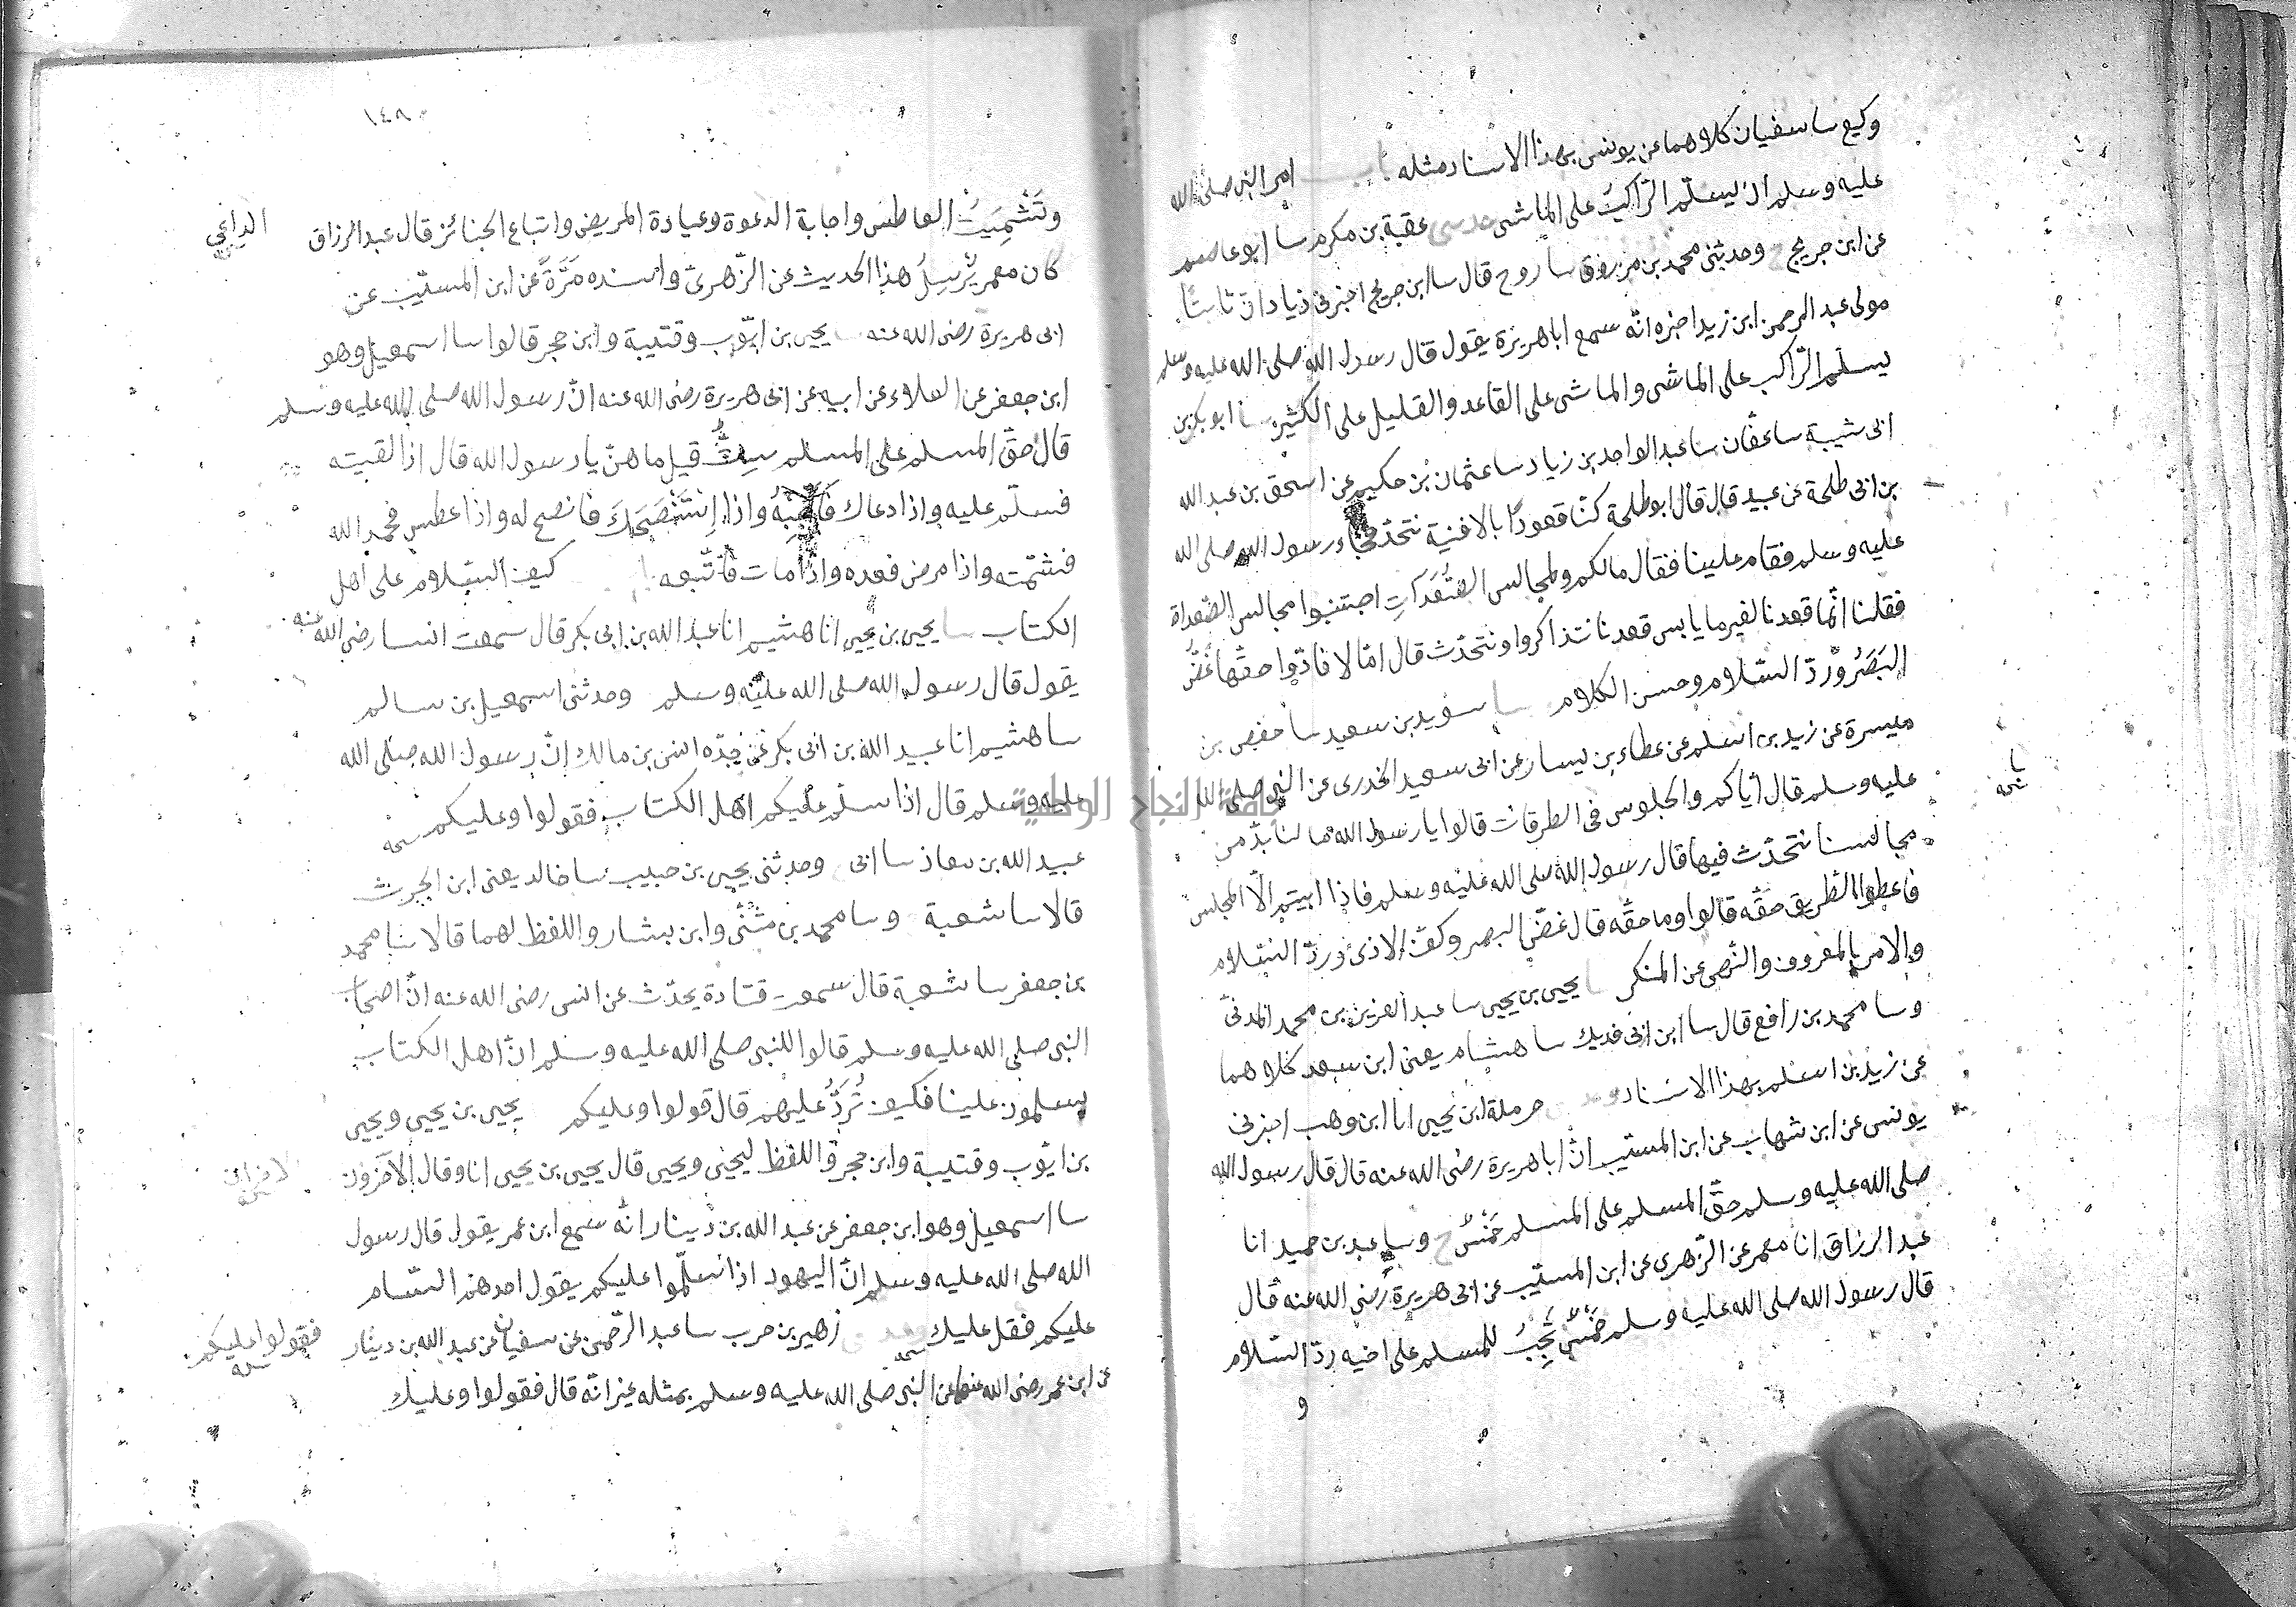 وكيع سا سفيان كلاهما عن يونس بهذا الاسناد مثله باب امر النبي صلى الله
عليه وسلم ان يسلم الراكب على الماشى حدسى عقبة بن مكرم سا ابو عاصم
عن ابن جريج ح وحدثنى محمد بن مرزوق سا روح قال سا ابن جريج اخبرنى زيادان ثابتًا
مولى عبد الرحمن ابن زيد اخبره انّه سمع ابا هريرة يقول قال رسول الله صلى الله عليه وسلم
يسلّم الرّاكب على الماشى والماشى على القاعد والقليل على الكثير سا ابو بكر بن
ابى شيبة سا عفّان سا عبد الواحد بن زياد سا عثمان بن حكيم عن اسحق بن عبد الله
بن ابى طلحة عن عبيد قال قال ابو طلحة كنّا قعودًا بالافنية نتحدّث فجاء رسول الله صلى الله
عليه وسلم فقام علينا فقال مالكم ولمجالس الصُّعُدَاتِ اجتنبوا مجالس الصعداة
فقلنا انّما قعدنا لغير ما يابس قعدنا نتذاكروا ونتحدّث قال امّا لا فادّوا حقّها غَضُّ
البَصَرُ وردّ السّلام وحسن الكلام سا سويد بن سعيد سا حفص بن
ميسرة عن زيد بن اسلم عن عطاء بن يسار عن ابى سعيد الخدرى عن النبى صلى الله
عليه وسلم قال ايّاكم والجلوس فى الطرقات قالوا يا رسول الله ما لنا بدّ من
مجالسنا نتحدّث فيها قال رسول الله صلى الله عليه وسلم فاذا ابيتم الّا المجلس
فاعطوا الطّريق حقّه قالوا وما حقّه قال غضّ البصر وكفّ الاذى وردّ السّلام
والامر بالمعروف والنّهى عن المنكر سا يحيى بن يحيى سا عبد العزيز بن محمد المدنىّ
وسا محمد بن رافع قال سا ابن ابى فديك سا هشام يعنى ابن سعد كلاهما
عن زيد بن اسلم بهذا الاسناد حرملة ابن يحيى انا ابن وهب اخبرنى
يونس عن ابن شهاب عن ابن المسيّب انّ ابا هريرة رضى الله عنه قال قال رسول الله
صلى الله عليه وسلم حقّ المسلم على المسلم خَمْسٌ ح وسا عبد بن حميد انا
عبد الرزاق انا معمر عن الزّهرى عن ابن المسيّب عن ابى هريرة رضى الله عنه قال
قال رسول الله صلى الله عليه وسلم خَمْسٌ تَجِبُ للمسلم على اخيه ردّ السّلام
و
نسخه
١٤٨
وتَشْمِيتُ العاطس واجابة الدعوة وعيادة المريض واتباع الجنائز قال عبد الرزاق
الداعي
كان معمر يُرْسِلُ هذا الحديث عن الزّهرىّ واسنده مَرَّةً عن ابن المسيّب عن
ابى هريرة رضى الله عنه سا يحيى بن ايّوب وقتيبة وابن حجر قالوا سا اسمعيل وهو
ابن جعفر عن العلاء عن ابيه عن ابى هريرة رضى الله عنه انّ رسول الله صلى الله عليه وسلم
قال حقّ المسلم على المسلم سِتٌّ قيل ما هنّ يا رسول الله قال اذا لقيته
فسلّم عليه واذا دعاك فَاَجِبْهُ واذا اِسْتَنْصَحَكَ فانصح له واذا عطس فحمد الله
فشمّته واذا مرض فعده واذا مات فاتّبعه كيف السّلام على اهل
الكتاب سا يحيى بن يحيى انا هشيم انا عبد الله بن ابى بكر قال سمعت انسا رضى الله عنه
يقول قال رسول الله صلى الله عليه وسلم وحدثنى اسمعيل بن سالم
سا هشيم انا عبيد الله بن ابى بكر عن جدّه انس بن مالك انّ رسول الله صلى الله
عليه وسلم قال اذا سلّم عليكم اهل الكتاب فقولوا وعليكم نسخه
عبيد الله بن معاذ سا ابى وحدثنى يحيى بن حبيب سا خالد يعنى ابن الحرث
قالا سا شعبة وسا محمد بن مثنّى وابن بشار واللفظ لهما قالا سا محمد
بن جعفر سا شعبة قال سمعت قتادة يحدّث عن انس رضى الله عنه انّ اصحاب
النبى صلى الله عليه وسلم قالوا للنبى صلى الله عليه وسلم انّ اهل الكتاب
يسلمون علينا فكيف نُرَدُّ عليهم قال قولوا وعليكم يحيى بن يحيى ويحيى
بن ايّوب وقتيبة وابن حجر واللفظ ليحيى ويحيى قال يحيى بن يحيى انا وقال الآخرون
سا اسمعيل وهو ابن جعفر عن عبد الله بن دينار انّه سمع ابن عمر يقول قال رسول
الله صلى الله عليه وسلم انّ اليهود اذا سلّموا عليكم يقول احدهم السّام
عليكم فقل عليك زهير بن حرب سا عبد الرّحمن عن سفيان عن عبد الله بن دينار
فقولوا عليكم
نسخه
عن ابن عمر رضى الله عنهما عن النبى صلى الله عليه وسلم بمثله غير انّه قال فقولوا وعليك
جامعة النجاح الوطنية